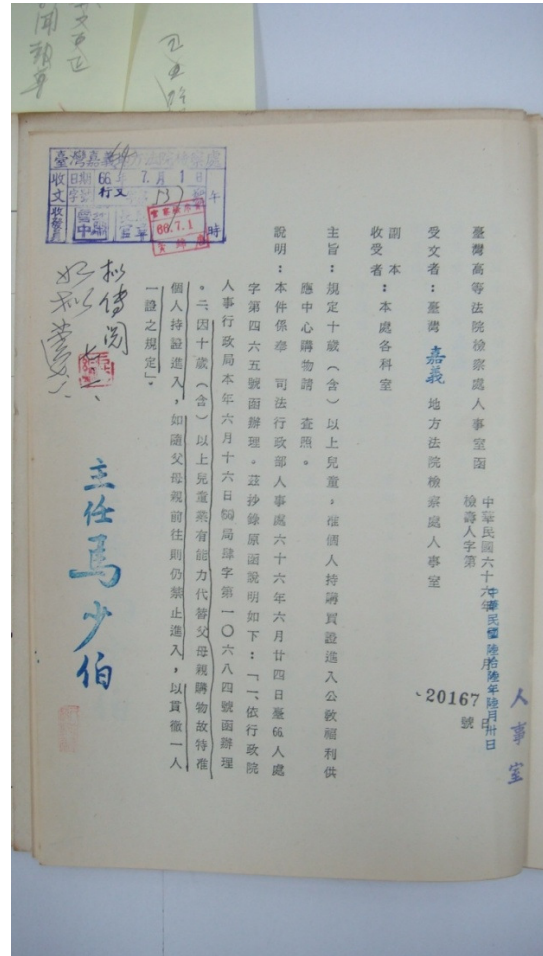 臺灣高等法院檢察處人事室函
中華民國六十六年　月　日
中華民國陸拾陸年陸月卅日
檢壽人字第20167號
人事室
受文者：臺灣嘉義地方法院檢察處人事室
副本
收受者：本處各科室
主旨：規定十歲（含）以上兒童，准個人持購買證進入公教福利供
應中心購物請　查照。
說明：本件係奉　司法行政部人事處六十六年六月廿四日臺66人處
字第四六五號函辦理。茲抄錄原函說明如下：「一、依行政院
人事行政局本年六月十六日66局肆字第一〇六八四號函辦理
。二、因十歲（含）以上兒童業有能力代替父母親購物故特准
個人持證進入，如隨父母親前往則仍禁止進入，以貫徹一人
一證之規定」。
主任馬少伯
擬傳閱
臺灣嘉義地方法院檢察處
收文
日期 66年 7.月 1日
66.7.1